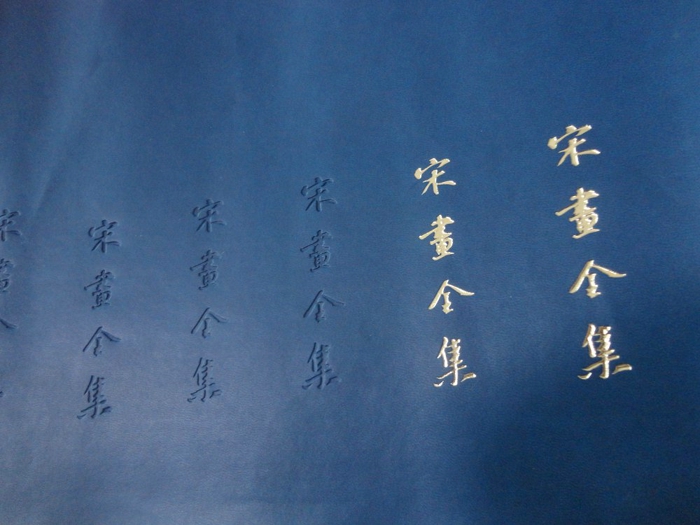 宋畫全集
宋畫全集
宋畫全集
宋畫全集
宋畫全集
宋畫全